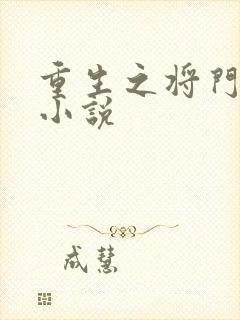 重生之将門
小説
成慧